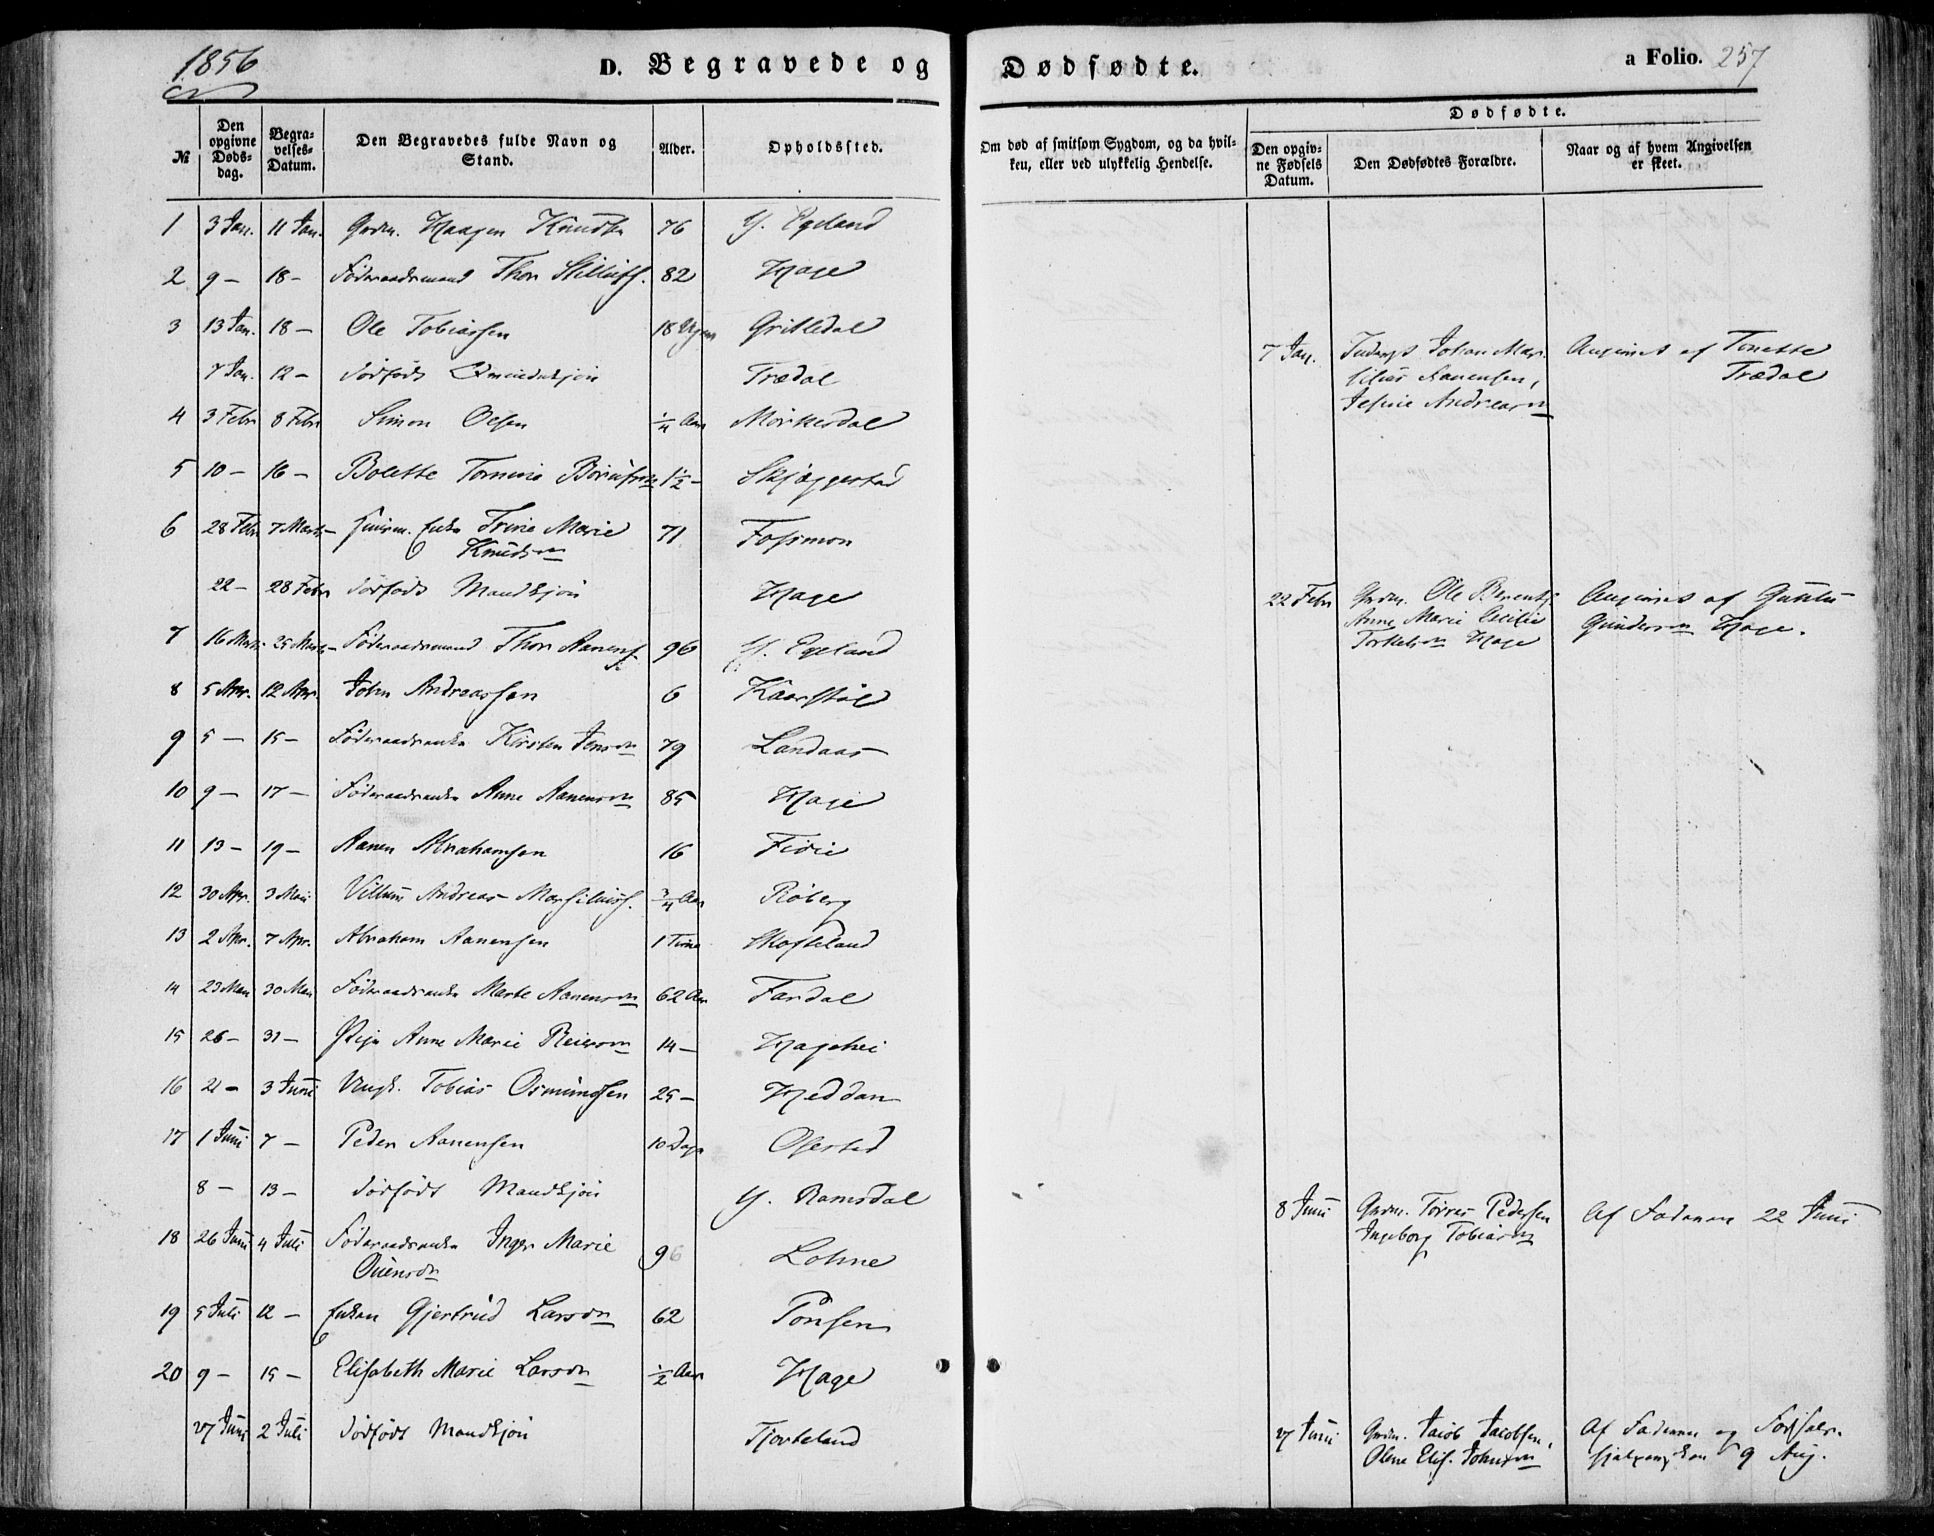 1856
D. Begravede og Dødfødte.
a Folio. 257
№ | Den opgivne Døds-dag. | Begra-velses-Datum. | Den Begravedes fulde Navn og Stand. | Alder. | Opholdssted. | Om død af smitsom Sygdom, og da hvil-ken, eller ved ulykkelig Hendelse. | Dødfødte. | Den opgiv-ne Fødsels Datum. | Den Dødfødtes Forældre. | Naar og af hvem Angivelsen er skeet.
1 3 Jan. 11 Jan. Gmdm. Haagen Knuds 76 Y. Egeland
2 9 – 18 – Føderaadsmand Thor 82 Hage
3 13 Jan. 18 – Ole Tobiassen 18 Uger Gritledal
7 Jan. 12 – Dødfødt Qvindekjøn Trædal
7 Jan. Johan Mar-
silius Aanensen,
Jesine Andreasdn
Angivet af Tonette
Trædal
4 3 Febr 8 Febr Simon Olsen ¼ Aar Mörkesdal
5 10 – 16 – Bolette Tomine 1½ – Skjæggestad
6 28 Febr 7 Marts Enke Trine Marie
Knudsdn 71 Fossmon
22 – 28 Febr Dødfødt Mandkjøn Hage
22 Febr Gmdm. Ole Berents.
Anne Marie Cecilie
Torkelsdn Hage
Angivet af
Gundersdn Hage.
7 16 Marts 25 Marts Føderaadsmand Thor Aanens. 96 Y. Egeland
8 5 Apr. 12 Apr. John Andreassen 6 Kaarstöl
9 5 – 15 – Føderaadsenke Kirsten Jensdn 79 Landaas
10 9 – 17 – Føderaadsenke Anne Aanensdn 85 Hage
11 13 – 19 – Aanen Abrahamsen 16 Fidie
12 30 Apr. 3 Mai Villum Andreas Marsiliuss. ¾ Aar Röberg
13 2 Apr. 7 Apr. Abraham Aanensen 1 Time Skofteland
14 23 Mai 30 Mai Føderaadsenke Marte Aanensdn 62 Aar Fardal
15 26 – 31 – Pige Anne Marie Reiersdn 14 – Hagehei
16 21 – 3 Juni Ungk. Tobias Osmundsen 25 – Heddan
17 1 Juni 7 – Peder Aanensen 10 Dage Ofsestad
8 – 13 – Dødfødt Mandkjøn Y. Ramsdal
8 Juni Gmdm. Torres Pedersen
Ingeborg Tobiasdn
Af Faderen 22 Juni
18 26 Juni 4 Juli Føderaadsenke Inger Marie
Ouensdn 96 Lohne
19 5 Juli 12 – Enken Gjertrud Larsdn 62 Ponsen
20 9 – 15 – Elisabeth Marie Larsdn ½ Aar Hage
27 Juni 2 Juli Dødfødt Mandkjøn Tjorteland
27 Juni Gmdm. Jacob Jacobsen,
Olene Elis. Johnsdn
Af Faderen og Fødsels-
hjelpersken 9 Aug.